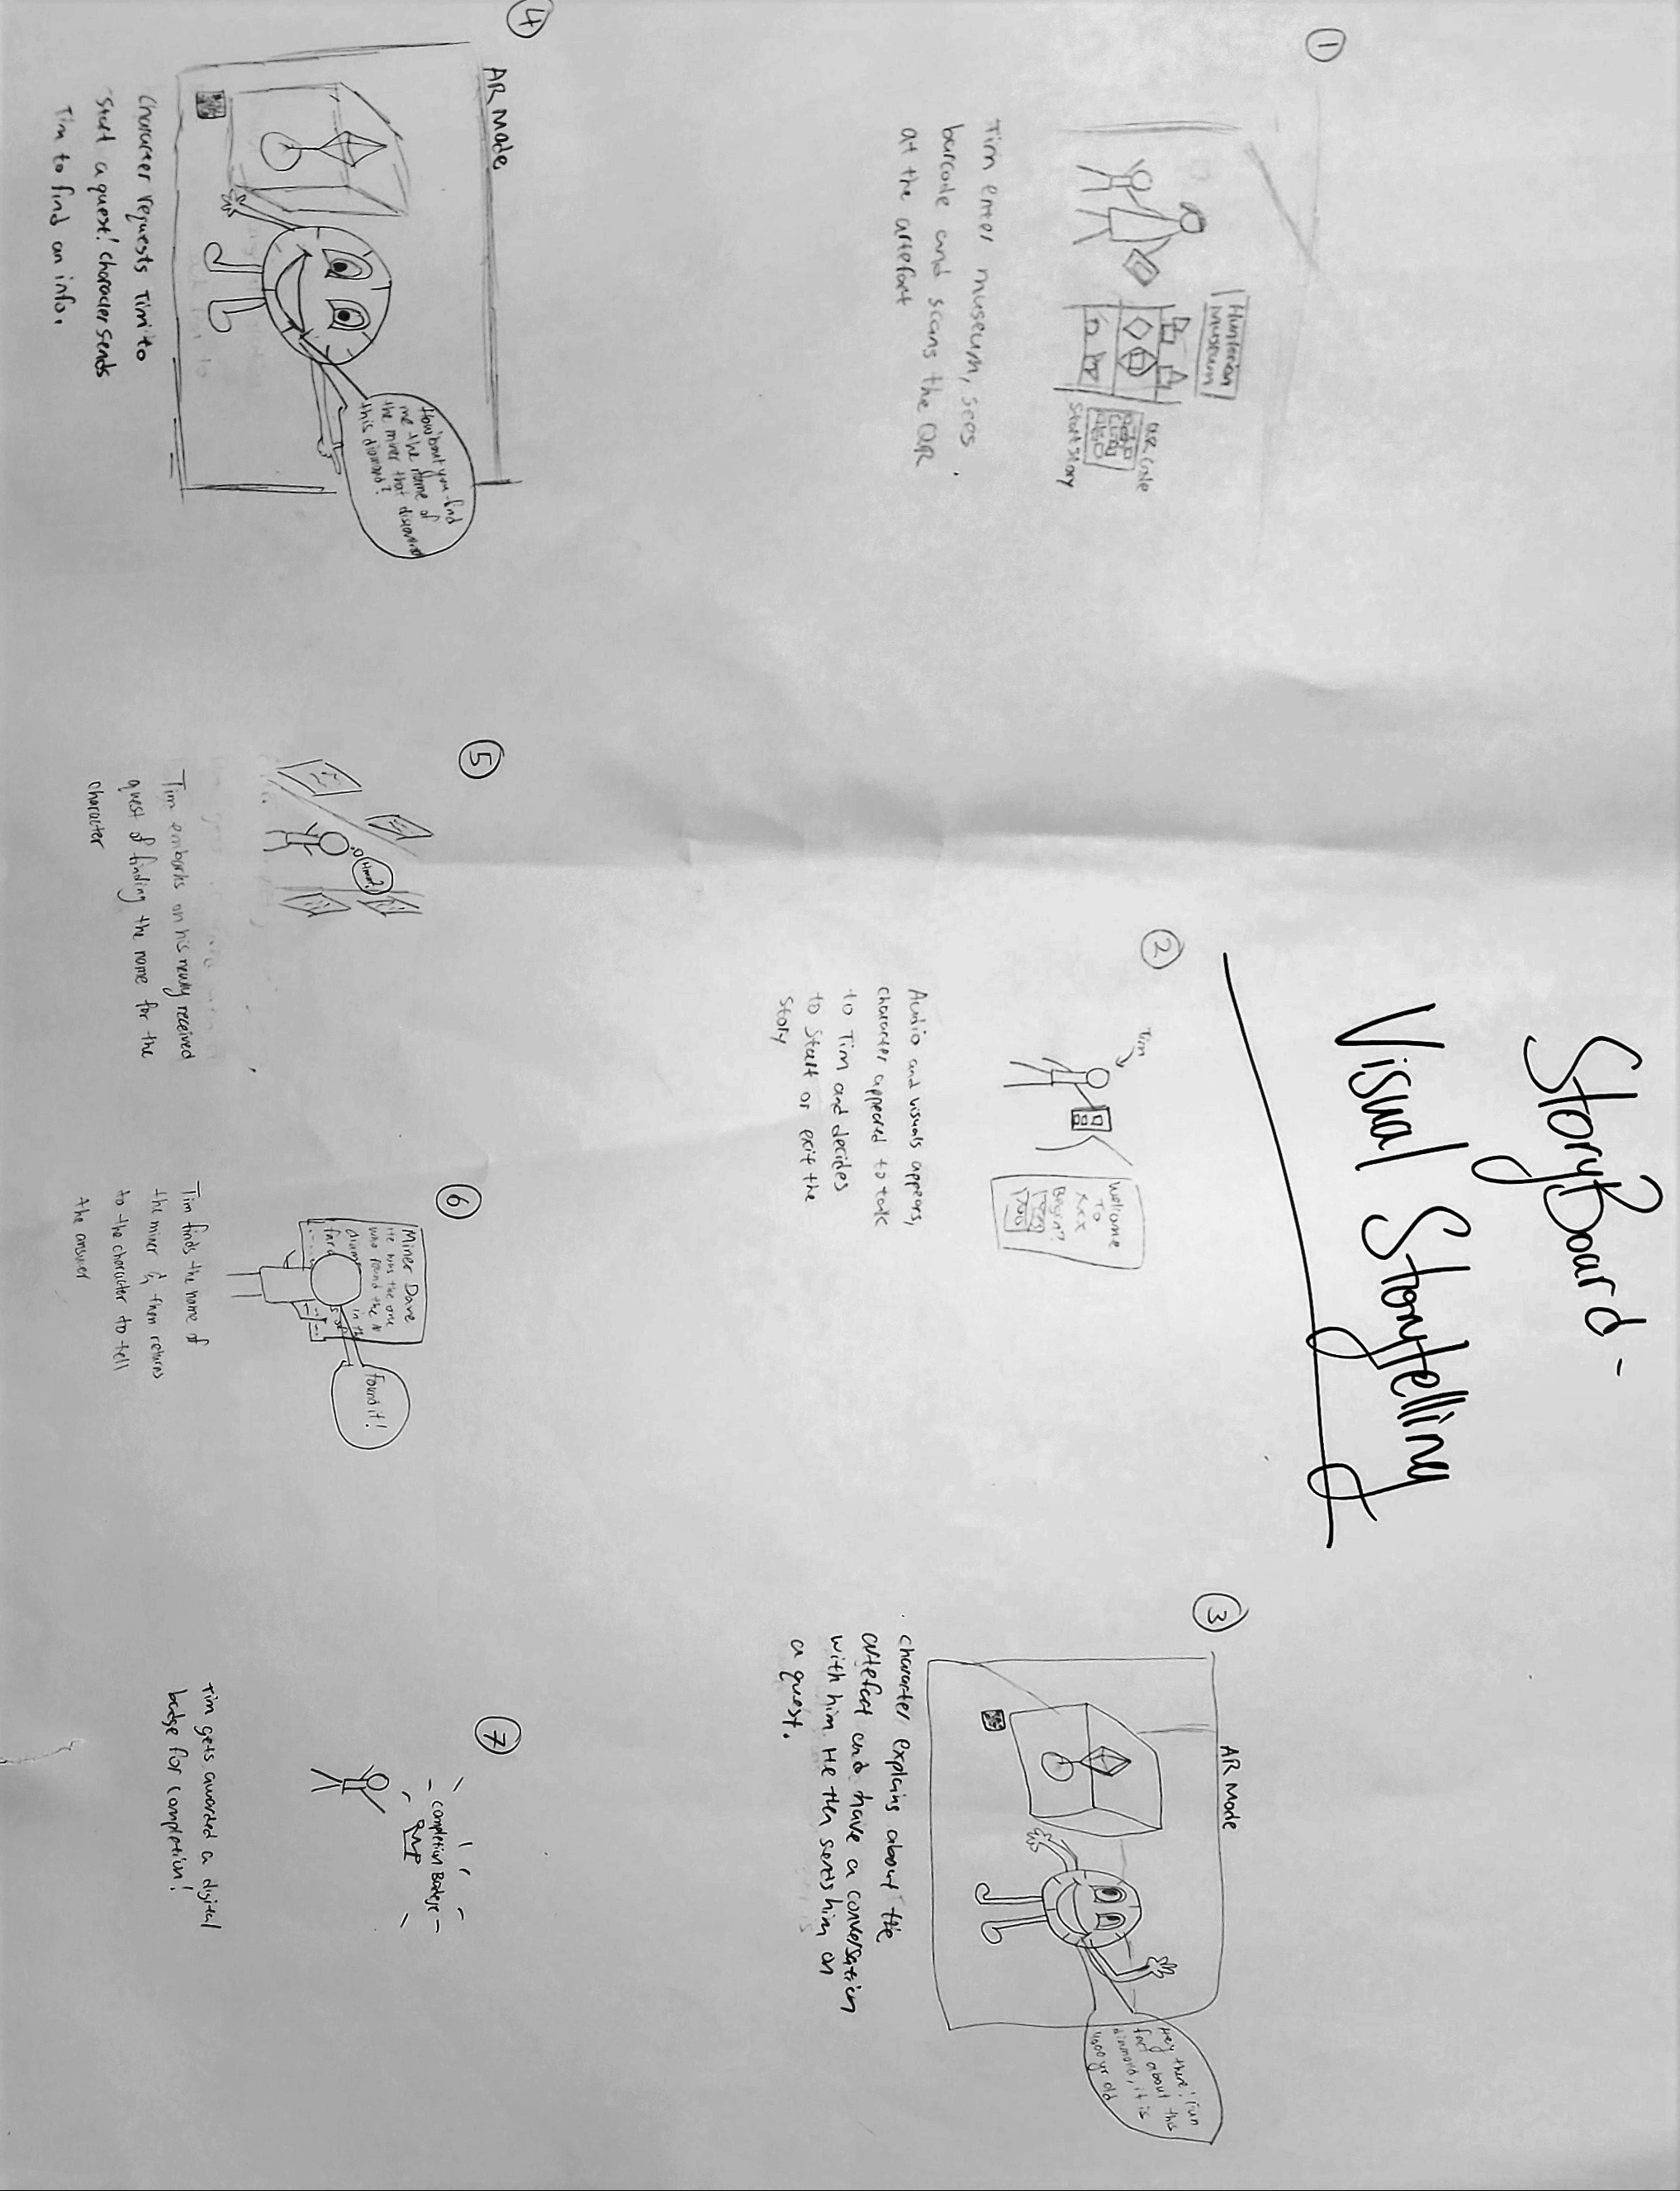 StoryBoard -
Visual Storytelling
1
Hunterian
Museum
QR Code
Start Story
Tim enter museum, sees
barcode and scans the QR
at the artefact
2
Tim
Welcome
To
XXX
Begin?
Audio and visuals appears,
character appeared to talk
to Tim and decides
to start or exit the
story
3
AR Mode
Hey there! Fun
fact about this
diamond, it is
4000 yr old
character explains about the
artefact and have a conversation
with him. He then sends him on
a quest.
4
AR Mode
How bout you find
me the name of
the miner that discovered
this diamond?
Character requests Tim to
start a quest! Character sends
Tim to find an info.
5
Hmm?
Tim embarks on his newly received
quest of finding the name for the
character
6
Miner Dave
He was the one
who found the
in the
Found it!
Tim finds the name of
the miner & then returns
to the character to tell
the answer
7
Completion Badge
Tim gets awarded a digital
badge for completion!